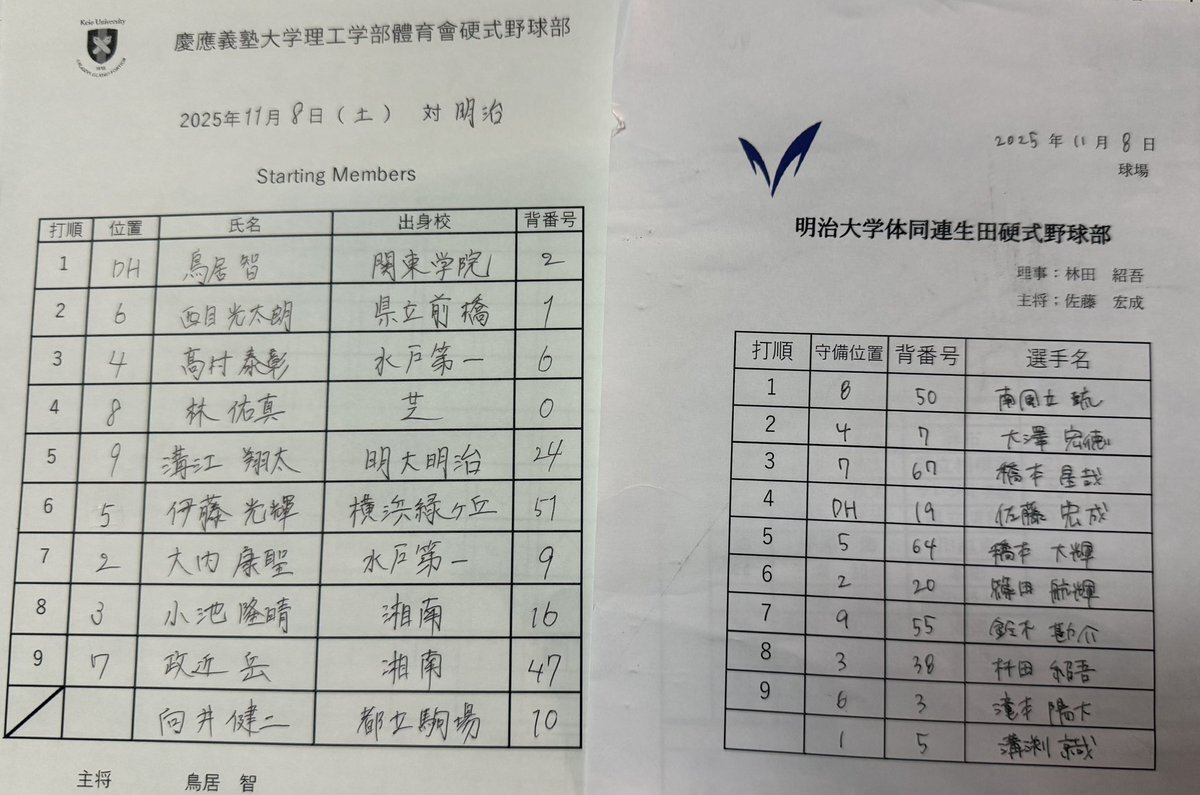 Keio University
慶應義塾大学理工学部體育會硬式野球部
2025年11月8日(土) 対 明治
Starting Members
打順 位置 氏名 出身校 背番号
1 DH 鳥居 智 関東学院 2
2 6 西目 光太朗 県立前橋 1
3 4 高村 泰彰 水戸第一 6
4 8 林 佑真 芝 0
5 9 溝江 翔太 明大明治 24
6 5 伊藤 光輝 横浜緑ヶ丘 51
7 2 大内 康聖 水戸第一 9
8 3 小池 隆晴 湘南 16
9 7 政近 岳 湘南 47
向井 健二 都立駒場 10
主将 鳥居 智
2025年11月8日
球場
明治大学体同連生田硬式野球部
理事:林田 紹吾
主将;佐藤 宏成
打順 守備位置 背番号 選手名
1 8 50
2 4 7 大澤 宏徳
3 7 67 橋本 星哉
4 DH 19 佐藤 宏成
5 5 64 橋本 大輝
6 2 20 篠田 航輝
7 9 55 鈴木 勘介
8 3 38 林田 紹吾
9 6 3 滝本 陽大
1 5 溝渕